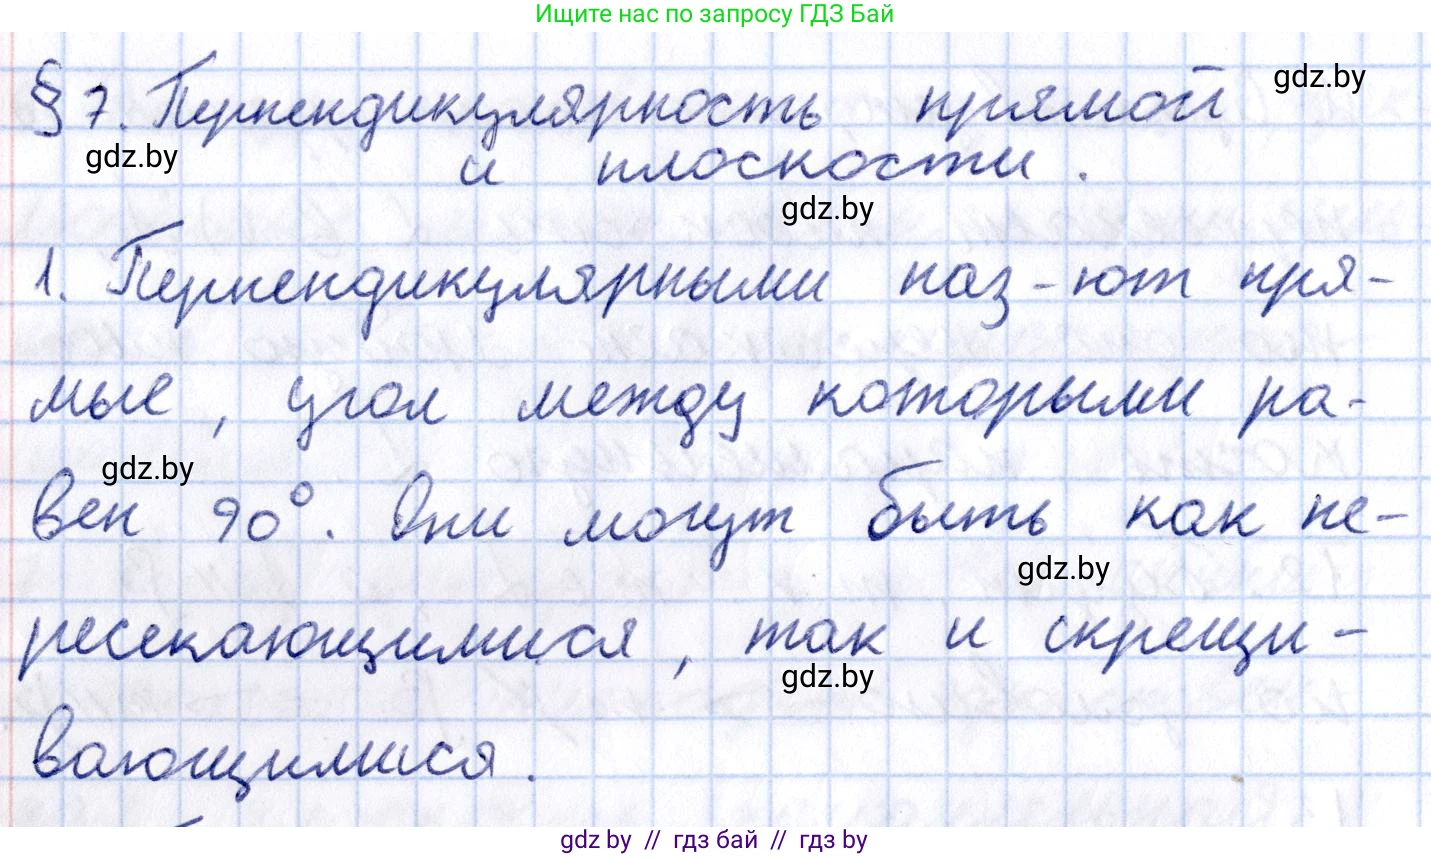 Ищите нас по запросу ГДЗ Бай
§ 7. Перпендикулярность прямой
gdz.by
gdz.by
и плоскости.
gdz.by
1. Перпендикулярными наз-ют пря-
мые, угол между которыми ра-
gdz.by
вен 90°. Они могут быть как пе-
gdz.by
ресекающимися, так и скрещи-
gdz.by
вающимися.
gdz.by // гдз бай // гдз by